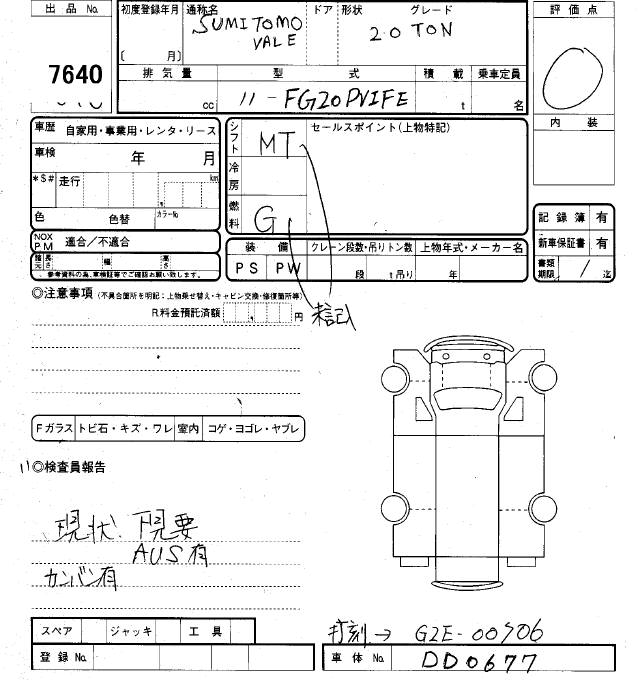 出品 No.
7640
初度登録年月
〔 月〕
通称名
SUMITOMO
YALE
ドア
形状
グレード
2.0 TON
排気量
cc
型式
11-FG20PVIFE
積載
t
乗車定員
名
評価点
内装
車歴 自家用・事業用・レンタ・リース
車検 年 月
*S# 走行 km
色 色替 カラーNo
NOX
PM 適合/不適合
諸元 長さ 幅 高さ
参考資料の為、車検証等でご確認お願い致します。
シフト MT
冷房
燃料 G
セールスポイント(上物特記)
装備
PS PW
クレーン段数・吊りトン数
段 t吊り
上物年式・メーカー名
年
記録簿 有
新車保証書 有
書類期限 / 迄
◎注意事項 (不具合箇所を明記:上物乗せ替え・キャビン交換・修復箇所等)
R料金預託済額 円
未記入
Fガラス トビ石・キズ・ワレ 室内 コゲ・ヨゴレ・ヤブレ
◎検査員報告
現状、下見要
AUS有
カンバン有
スペア ジャッキ 工具
登録 No.
打刻→ G2E-00706
車体 No. DD0677